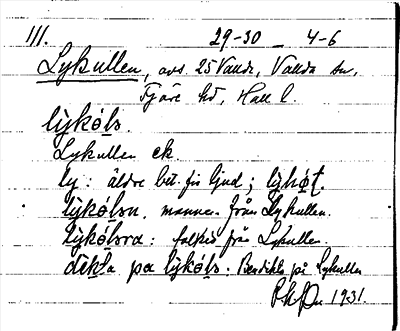 111. 29-30 – 4-6
Lykullen, avs. 25 Valldа, Vallda sn,
Fjäre hd, Hall l.
lỳkə́ls.
Lykullen ek
ly: äldre bet. för ljud; lỳhøt.
lỳkə́lsn. mannen från Lykullen.
lỳkə́lsra: folket från Lykullen.
dikla pa lỳkə́ls: Bendikta på Lykullen
1931.